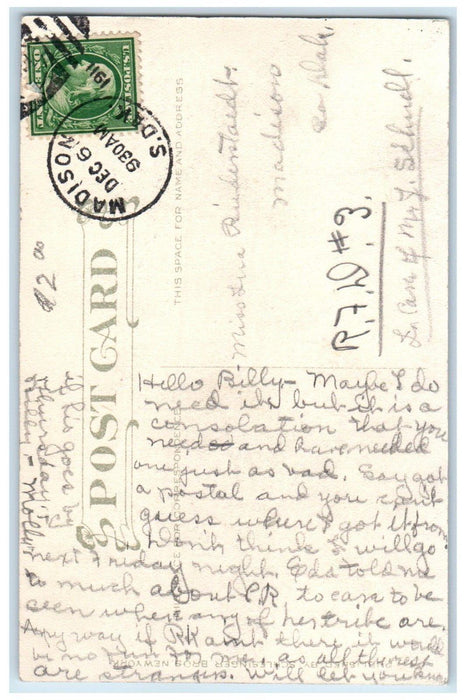 POST CARD
THIS SPACE FOR NAME AND ADDRESS
MADISON
S.DAK.
DEC 6
930AM
191
Miss Ina
Madison
So Dak.
R.F.D #3
In Care of Mr. J. Schnell.
Hello Billy - Maybe I do
need it but it is a
consolation that you
need and have needed
one just as bad. Say got
a postal and you can't
guess where I got it from
Don't think I will go
next Friday night. Eda told me
to much about P.R. to care to be
seen when any of her tribe are.
Any way if P.R. aint there it would
be no fun for me, as all the rest
are strangers. Will let you know
if he goes by
Thursday.
Billy - Molly